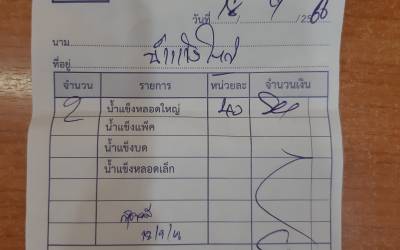 วันที่ 18 9 2566
นาม
ที่อยู่
จำนวน รายการ หน่วยละ จำนวนเงิน
2 น้ำแข็งหลอดใหญ่ 40
น้ำแข็งแพ็ค
น้ำแข็งบด
น้ำแข็งหลอดเล็ก